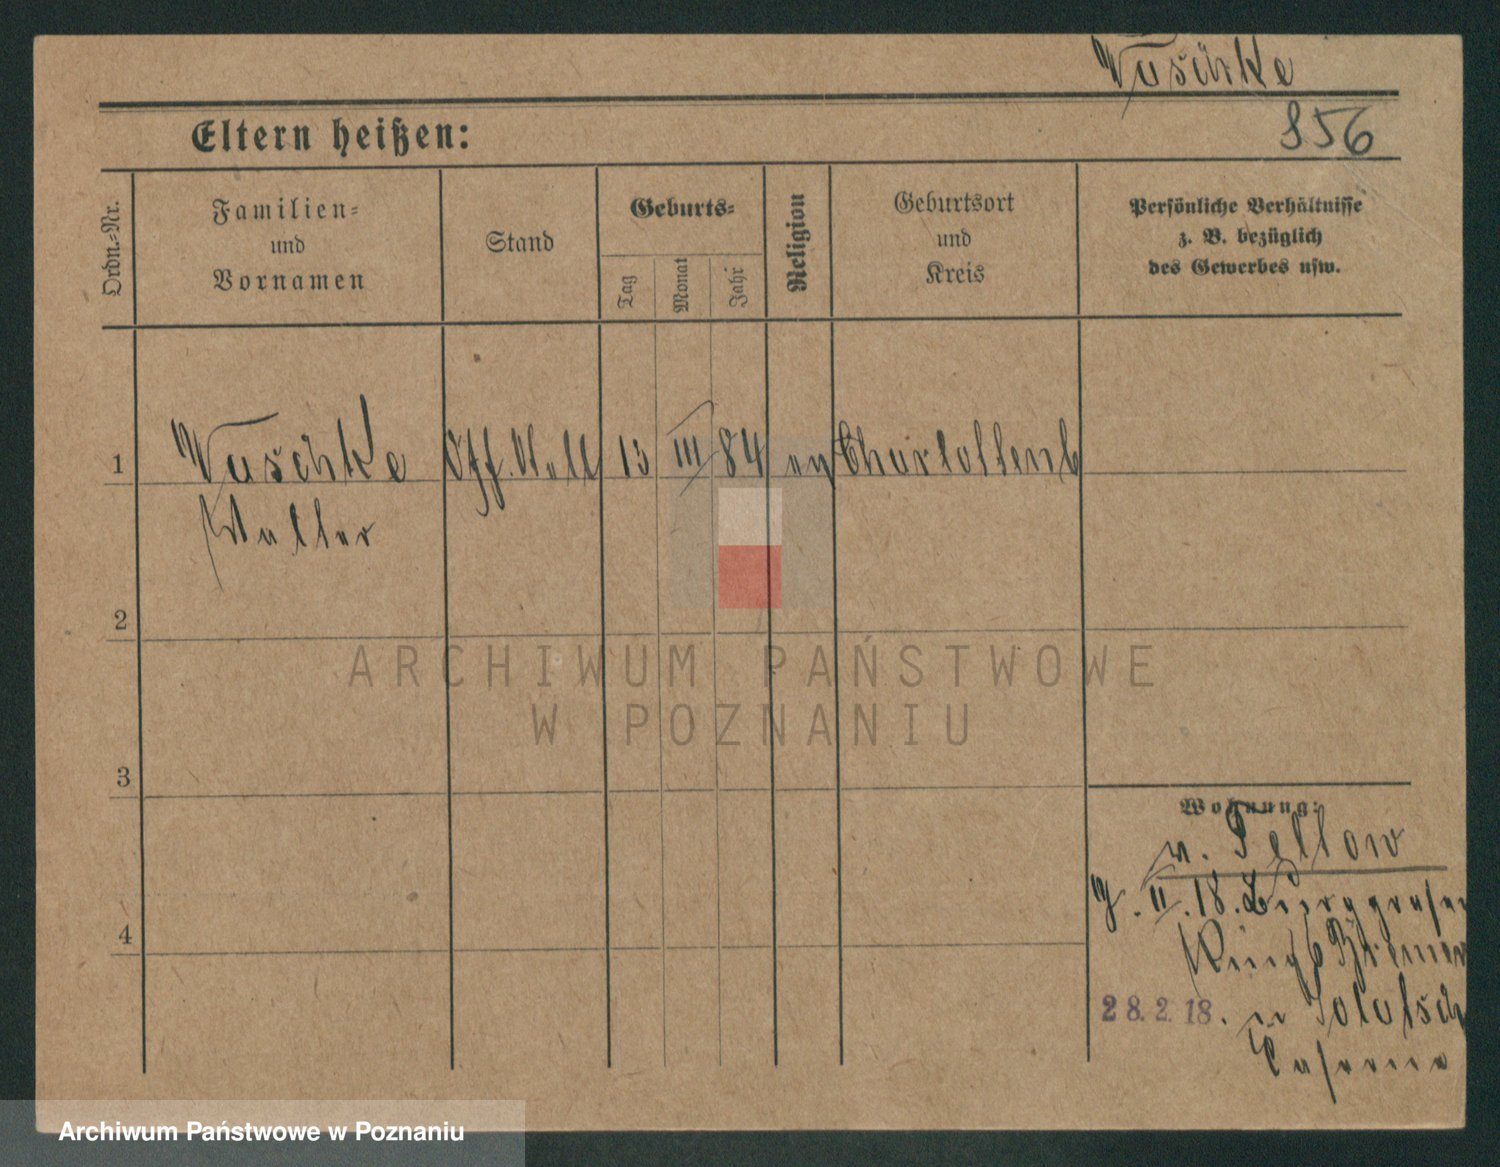 Waschke
856
Eltern heißen:
Ordn.=Nr.
Familien=
und
Vornamen
Stand
Geburts=
Tag
Monat
Jahr
Religion
Geburtsort
und
Kreis
Persönliche Verhältnisse
z. B. bezüglich
des Gewerbes usw.
1
Waschke Off. 13 III 84 ev Charlottenb
Walter
2
3
4
Wohnung:
v. Tellow
II. 18. Burggrafen
Ring 6 Bremer
28. 2. 18.
Caserne
ARCHIWUM PAŃSTWOWE
W POZNANIU
Archiwum Państwowe w Poznaniu